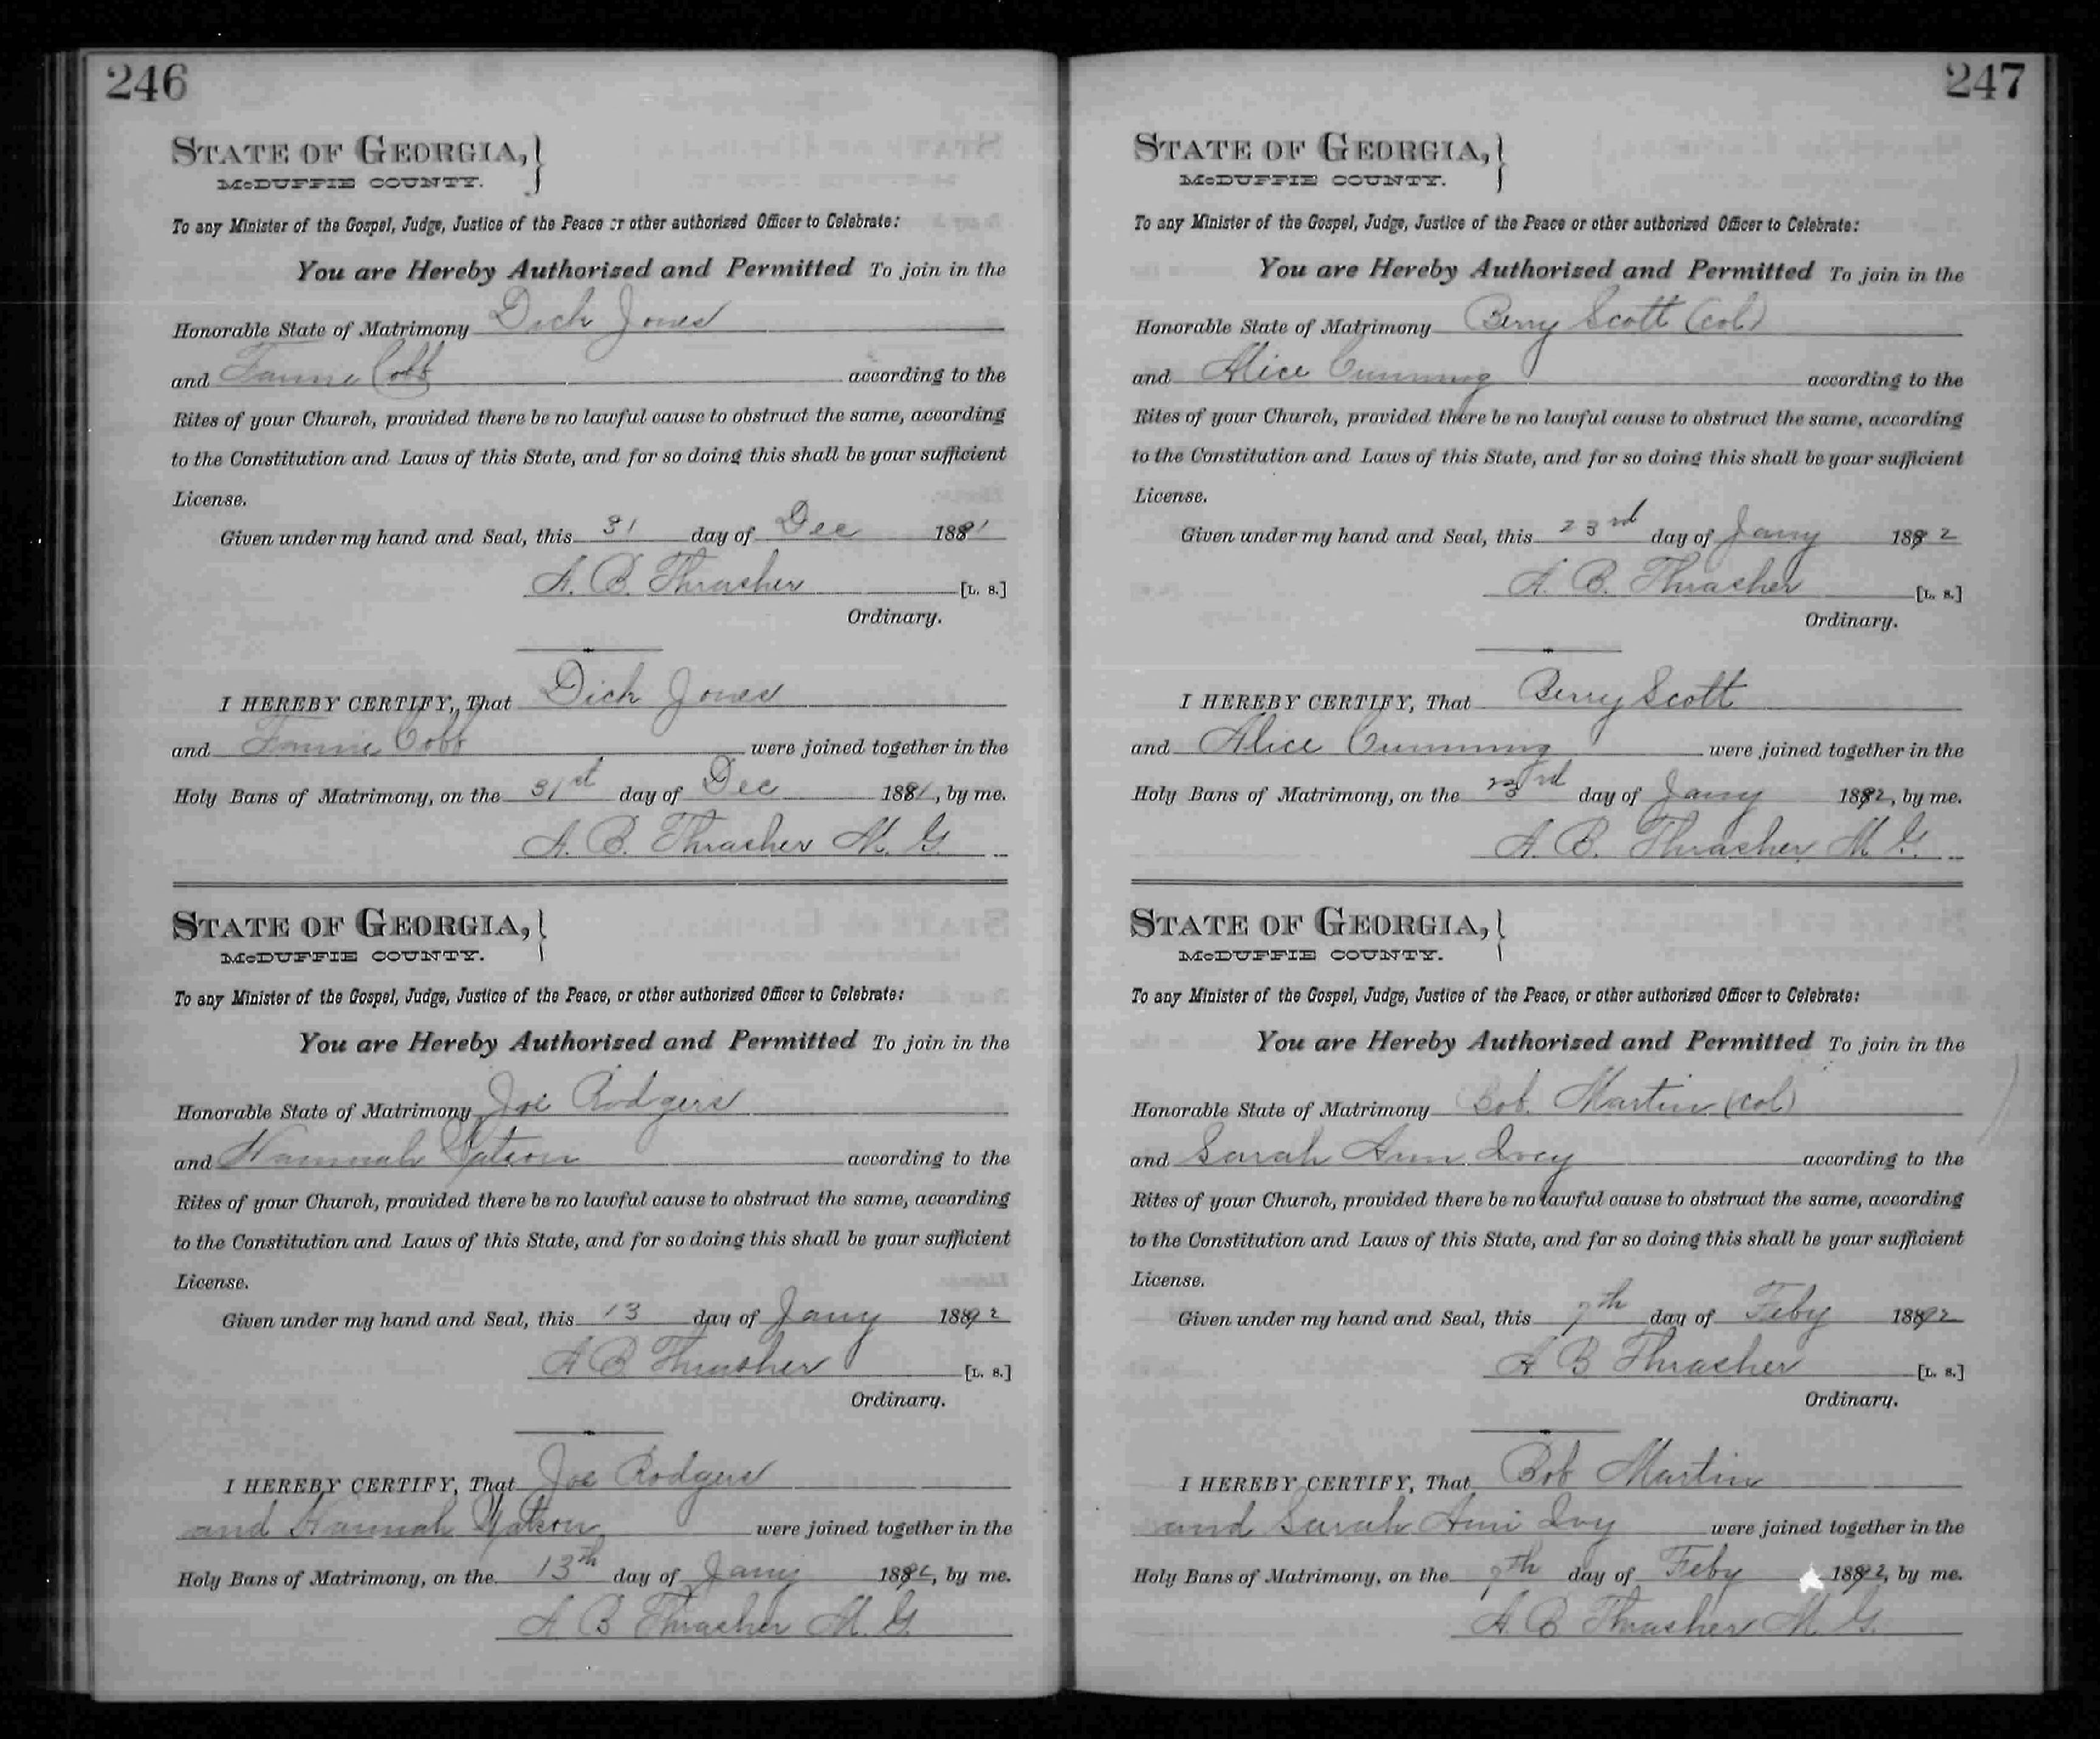 246
STATE OF GEORGIA,
McDUFFIE COUNTY.
To any Minister of the Gospel, Judge, Justice of the Peace or other authorized Officer to Celebrate:
You are Hereby Authorized and Permitted To join in the
Honorable State of Matrimony Dick Jones
and Fannie Cobb according to the
Rites of your Church, provided there be no lawful cause to obstruct the same, according
to the Constitution and Laws of this State, and for so doing this shall be your sufficient
License.
Given under my hand and Seal, this 31 day of Dec 1891
A. B. Thrasher [L. S.]
Ordinary.
I HEREBY CERTIFY, That Dick Jones
and Fannie Cobb were joined together in the
Holy Bans of Matrimony, on the 31st day of Dec 1891, by me.
A. B. Thrasher M. G.
STATE OF GEORGIA,
McDUFFIE COUNTY.
To any Minister of the Gospel, Judge, Justice of the Peace, or other authorized Officer to Celebrate:
You are Hereby Authorized and Permitted To join in the
Honorable State of Matrimony Joe Rodgers
and Hannah Watson according to the
Rites of your Church, provided there be no lawful cause to obstruct the same, according
to the Constitution and Laws of this State, and for so doing this shall be your sufficient
License.
Given under my hand and Seal, this 13 day of Jany 1892
A B Thrasher [L. S.]
Ordinary.
I HEREBY CERTIFY, That Joe Rodgers
and Hannah Watson were joined together in the
Holy Bans of Matrimony, on the 13th day of Jany 1892, by me.
A B Thrasher M. G.
247
STATE OF GEORGIA,
McDUFFIE COUNTY.
To any Minister of the Gospel, Judge, Justice of the Peace or other authorized Officer to Celebrate:
You are Hereby Authorized and Permitted To join in the
Honorable State of Matrimony Berry Scott (col)
and Alice Cumming according to the
Rites of your Church, provided there be no lawful cause to obstruct the same, according
to the Constitution and Laws of this State, and for so doing this shall be your sufficient
License.
Given under my hand and Seal, this 23rd day of Jany 1892
A. B. Thrasher [L. S.]
Ordinary.
I HEREBY CERTIFY, That Berry Scott
and Alice Cumming were joined together in the
Holy Bans of Matrimony, on the 23rd day of Jany 1892, by me.
A. B. Thrasher M. G.
STATE OF GEORGIA,
McDUFFIE COUNTY.
To any Minister of the Gospel, Judge, Justice of the Peace, or other authorized Officer to Celebrate:
You are Hereby Authorized and Permitted To join in the
Honorable State of Matrimony Bob Martin (col)
and Sarah Ann Ivey according to the
Rites of your Church, provided there be no lawful cause to obstruct the same, according
to the Constitution and Laws of this State, and for so doing this shall be your sufficient
License.
Given under my hand and Seal, this day of Feby 1892
A B Thrasher [L. S.]
Ordinary.
I HEREBY CERTIFY, That Bob Martin
and Sarah Ann Ivy were joined together in the
Holy Bans of Matrimony, on the day of Feby 1892, by me.
A B Thrasher M. G.